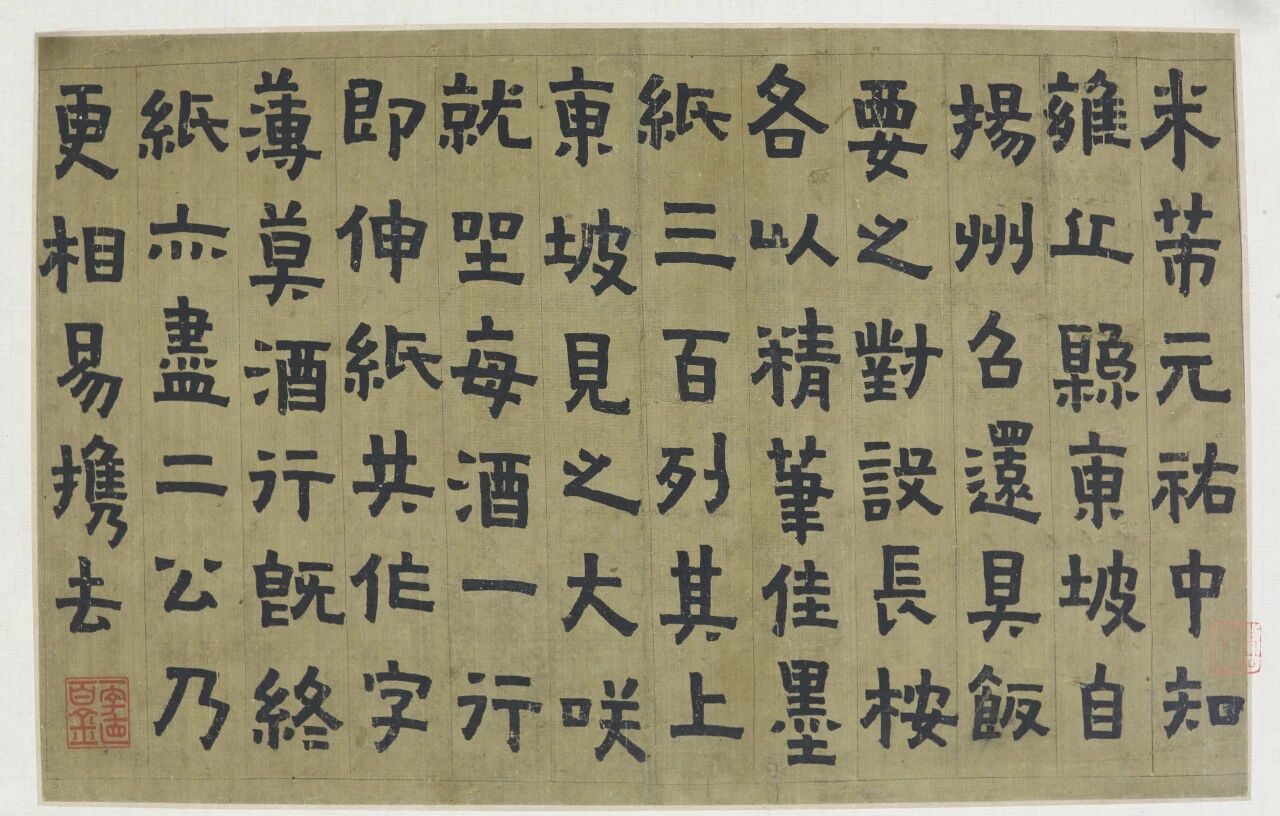 米芾元祐中知
雍丘縣東坡自
揚州召還具飯
要之對設長桉
各以精筆佳墨
紙三百列其上
東坡見之大咲
就坐每酒一行
即伸紙共作字
薄莫酒行既終
紙亦盡二公乃
更相易攜去